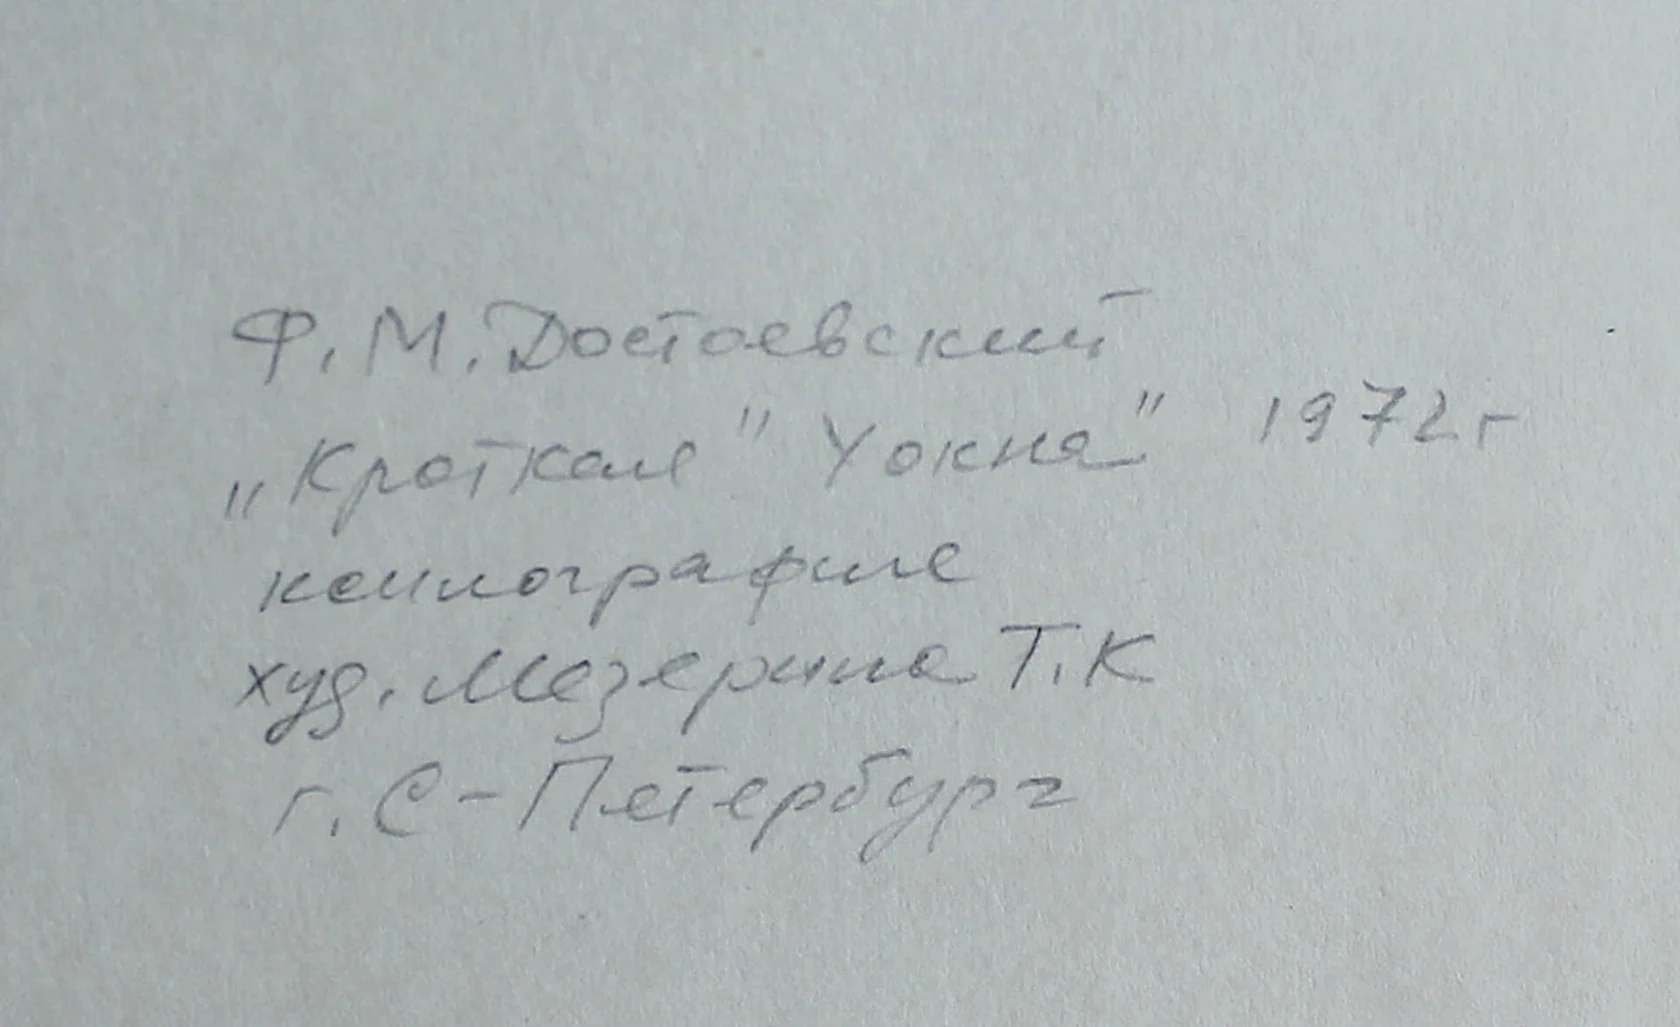 Ф.М.Достоевский
„Кроткая" У окна" 1972г
ксилография
худ. Мезерина Т.К
г. С-Петербург